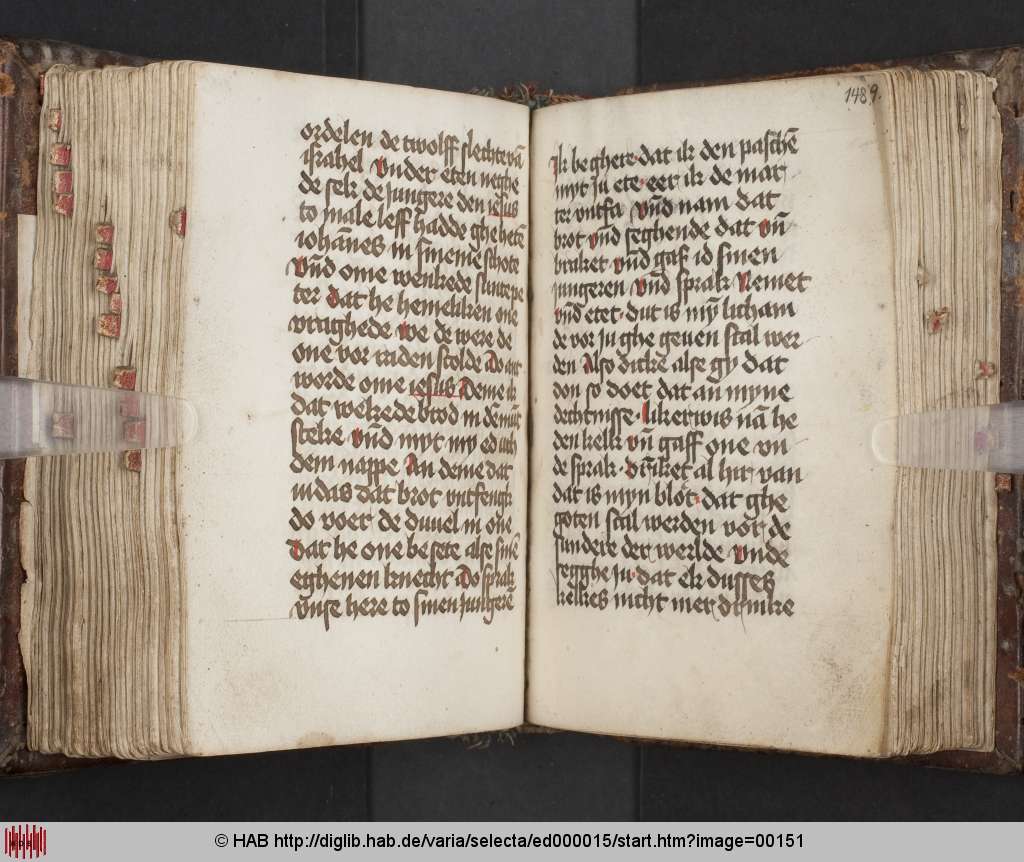 ordelen de twolff slechte vā
israhel Vnder eten neghe
de sek de jungere den iesus
to male leff hadde ghe hetē
iohānes in sineme schote
Vn̄d ome wenkede sunte pe
ter Dat he hemeliken one
vraghede we de were de
one vor raden scolde Do ant
worde ome iesus Deme ik
dat wekede brod in de mūt
steke Vn̄d myt my ed uth
dem nappe An deme dat
iudas dat brot vntfengk
do voer de duuel in one
Dat he one be sete alse sinē
eghenen knecht Do sprak
vnse here to sinen jungerē
1489.
Ik be ghere dat ik den paschē
myt ju ete eer ik de mar
ter vntfa Vn̄d nam dat
brot vn̄d seghende dat vn̄
braket vn̄d gaf id sinen
jungeren Vn̄d sprak Nemet
vn̄d etet dut is mȳ licham
de vor ju ghe geuen scal wer
den Also dicke alse gy dat
don so doet dat an myne
dechtnisse Likerwis nā he
den kelk vn̄ gaff one vn
de sprak drīket al hir van
dat is myn blot dat ghe
goten scal werden vor de
sundere der werlde Vnde
segghe ju dat ek dusses
kelkes nicht mer drinke
© HAB http://diglib.hab.de/varia/selecta/ed000015/start.htm?image=00151